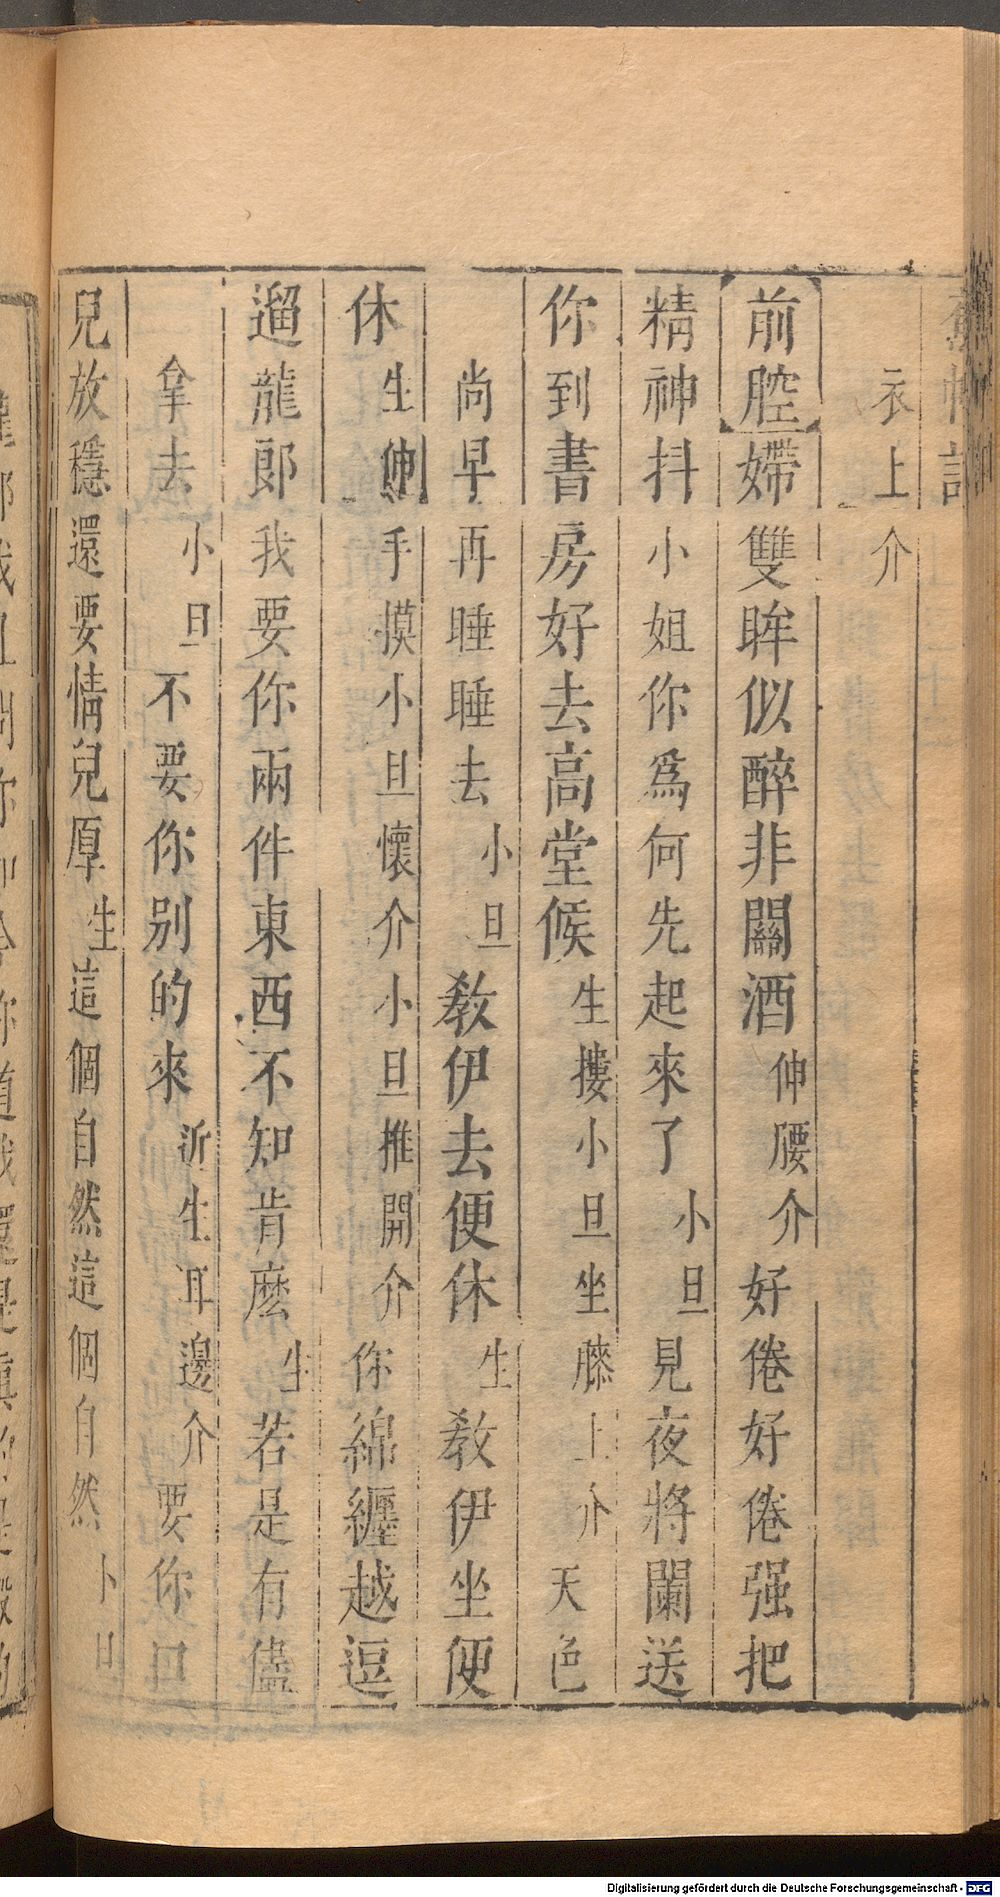 衣上介
前腔嬶雙眸似醉非關酒伸腰介好倦好倦强把
精神抖小姐你爲何先起來了小旦見夜將闌送
你到書房好去高堂候生摟小旦坐膝上介天色
尚早再睡睡去小旦教伊去便休生教伊坐便
休生伸手摸小旦懷介小旦推開介你綿纏越逗
遛龍郎我要你兩件東西不知肯麽生若是有儘
拿去小旦不要你别的來近生耳邊介要你口
兒放穩還要情兒厚生這個自然這個自然
Digitalisierung gefördert durch die Deutsche Forschungsgemeinschaft - DFG